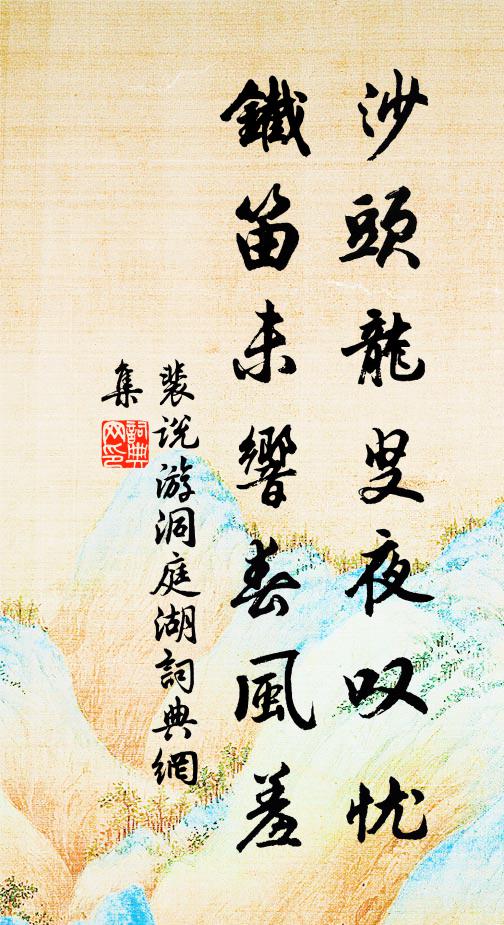 沙頭龍叟夜叹忧
鐵笛未響春風羞
裴说游洞庭湖詞典網
集
詞典
网印